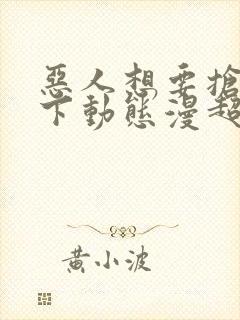 惡人想要搶
下動態漫超
黃小波